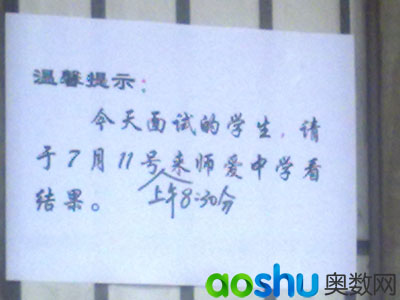 温馨提示：
今天面试的学生，请
于7月11号来师爱中学看
上午8:30分
结果。
aoshu奥数网